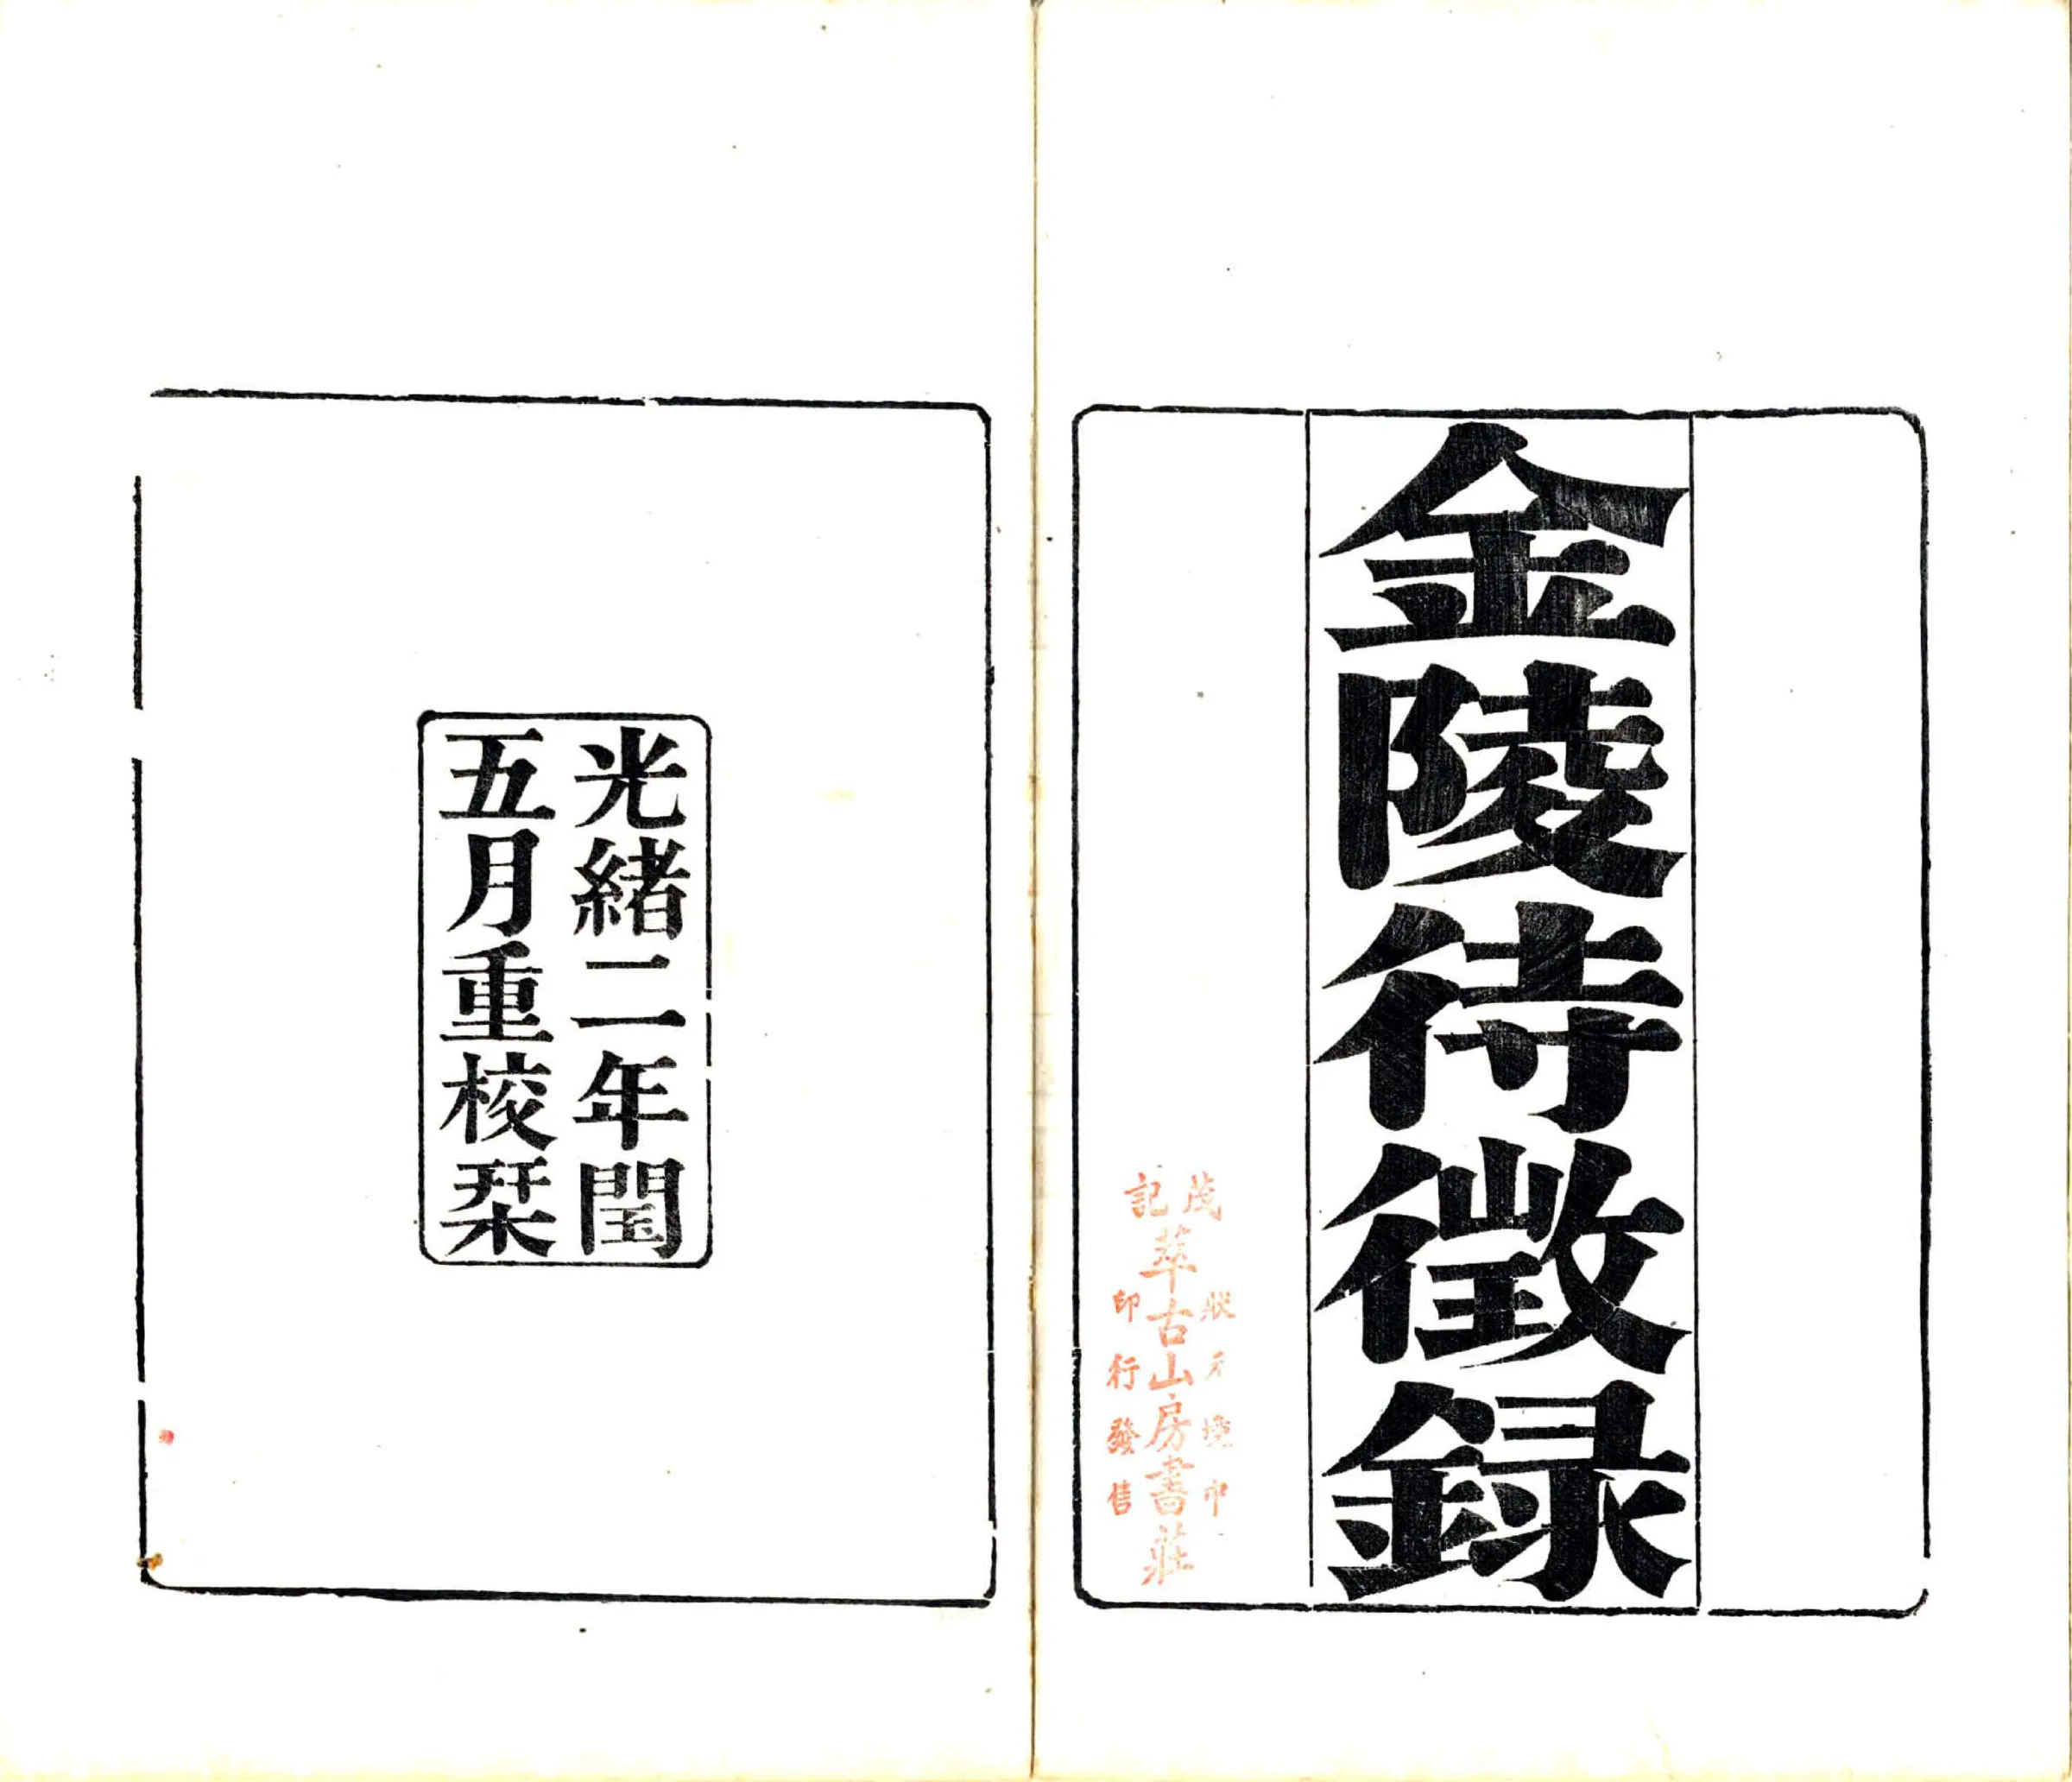 金陵待徵録
茂記
狀元境中
萃古山房書莊
印行發售
光緒二年閏
五月重校栞